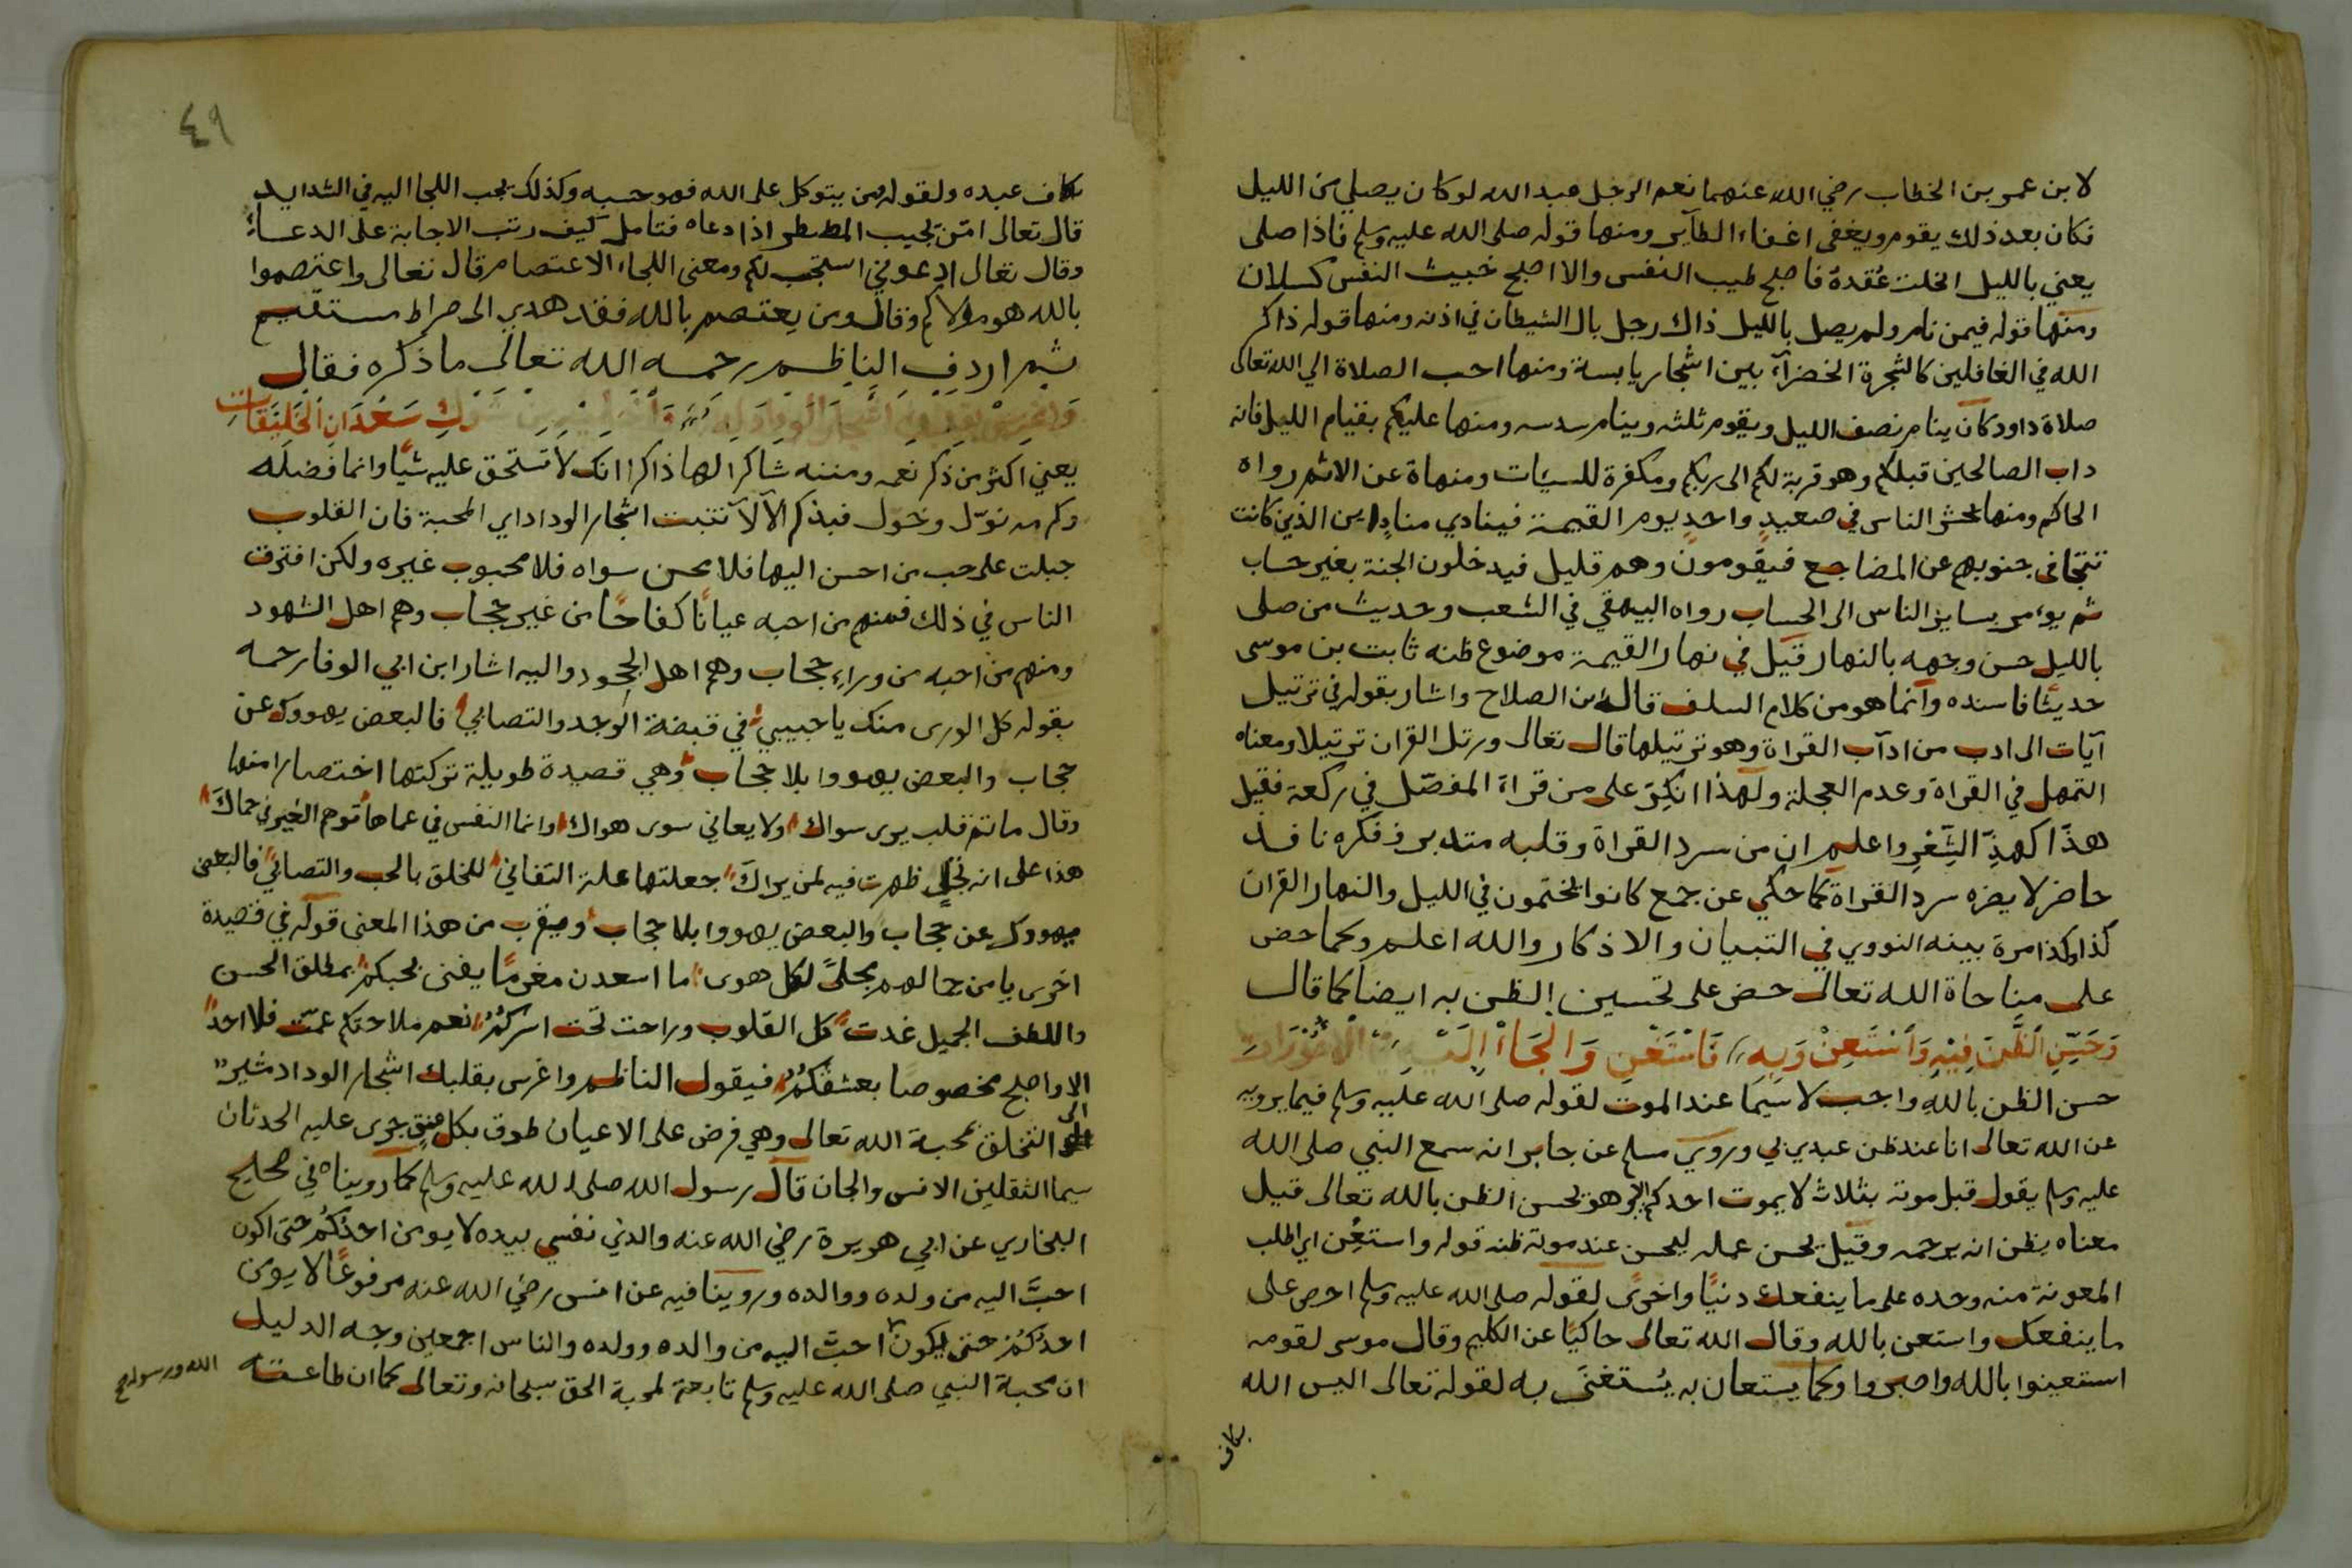 لابن عمر بن الخطاب رضي الله عنهما نعم الرجل عبد الله لو كان يصلي من الليل
فكان بعد ذلك يقوم ويغفى اغفاء الطآير ومنها قوله صلى الله عليه وسلم فاذا صلى
يعني بالليل انحلت عُقده فاصبح طيب النفس والا اصبح خبيث النفس كسلان
ومنها قوله فيمن نام ولم يصل بالليل ذاك رجل بال الشيطان في اذنه ومنها قوله ذاكر
الله في الغافلين كالشجرة الخضرآء بين اشجار يابسة ومنها احب الصلاة الي الله تعالى
صلاة داود كان ينام نصف الليل ويقوم ثلثه وينام سدسه ومنها عليكم بقيام الليل فانه
داب الصالحين قبلكم وهو قربة لكم الى ربكم ومكفرة للسيئات ومنهاة عن الاثم رواه
الحاكم ومنها يحشر الناس في صعيدٍ واحدٍ يوم القيمة فينادي منادٍ اين الذين كانت
تتجافى جنوبهم عن المضاجع فيقومون وهم قليل فيدخلون الجنة بغير حساب
ثم يوءمر بساير الناس الى الحساب رواه البيهقي في الشعب وحديث من صلى
بالليل حسن وجهه بالنهار قيل في نهار القيمة موضوع ظنه ثابت بن موسى
حديثا فاسنده وانما هو من كلام السلف قاله ابن الصلاح واشار بقوله في ترتيل
آيات الى ادب من ادآب القراة وهو ترتيلها قال تعالى ورتل القران ترتيلا ومعناه
التمهل في القراة وعدم العجلة ولهذا انكر على من قراة المفصّل في ركعة فقيل
هذّا كهذِّ الشِّعْرِ واعلم ان من سرد القراة وقلبه متدبر وفكره نافد
حاضر لا يضره سرد القراة كما حكي عن جمع كانوا يختمون في الليل والنهار القران
كذا وكذا مرة بينه النووي في التبيان والاذكار والله اعلم وكما حض
على مناجاة الله تعالى حض على تحسين الظن به ايضا كما قال
وَحَسِّنِ الظَّنَّ فِيْهِ وَاسْتَعِنْ وَبِهِ فَاسْتَغْنِ وَالْجَاْ اِلَيْهِ
حسن الظن بالله واجب لاسيما عند الموت لقوله صلى الله عليه وسلم فيما يرويه
عن الله تعالى انا عند ظن عبدي بي وروي مسلم عن جابر انه سمع النبي صلى الله
عليه وسلم يقول قبل موته بثلاث لا يموت احدكم الا وهو يحسن الظن بالله تعالى قيل
معناه يظن انه يرحمه وقيل يحسن عمله ليحسن عند موته ظنه قوله واستعِن اي اطلب
المعونة منه وحده على ما ينفعك دنيًا واخرى لقوله صلى الله عليه وسلم احرص على
ما ينفعك واستعن بالله وقال الله تعالى حاكيًا عن الكليم وقال موسى لقومه
استعينوا بالله واصبروا وكما يستعان به يُستغنَى به لقوله تعالى اليس الله
بكاف
٤٩
بكاف عبده ولقوله ومن يتوكل على الله فهو حسبه وكذلك يجب اللجا اليه في الشدايد
قال تعالى امّن يجيب المضطر اذا دعاه فتامل كيف رتب الاجابة على الدعاء
وقال تعالى ادعوني استجب لكم ومعنى اللجاء الاعتصام قال تعالى واعتصموا
بالله هو مولاكم وقال ومن يعتصم بالله فقد هدي الى صراط مستقيم
ثم اردف الناظم رحمه الله تعالى ما ذكره فقال
شَوْكِ سَعْدَانِ الْخَلِيْقَاتِ
يعني اكثر من ذكر نعمه ومننه شاكرا لها ذاكرا انك لا تستحق عليه شيًا وانما فضله
وكرمه نوّل وخوّل فبذكر الآلآ تنبت اشجار الوداد اي المحبة فان القلوب
جبلت على حب من احسن اليها فلا محسن سواه فلا محبوب غيره ولكن افترق
الناس في ذلك فمنهم من احبه عيانًا كفاحًا من غير حجاب وهم اهل الشهود
ومنهم من احبه من وراء حجاب وهم اهل الجحود واليه اشار ابن ابي الوفا رحمه
بقوله كل الورى منك يا حبيبي في قبضة الوجد والتصابي فالبعض يهووك عن
حجاب والبعض يهووا بلا حجاب وهي قصيدة طويلة تركتها اختصارا منها
وقال ما ثم قلب يرى سواك ولا يعاني سوى هواك وانما النفس في عماها توهم الغير في حماكَ
هذا على انه تجلى ظهرت فيه لمن يراكَ جعلتها علة التفاني للخلق بالحب والتصابي فالبعض
يهووك عن حجاب والبعض يهووا بلا حجاب ويقرب من هذا المعنى قوله في قصيدة
اخرى يا من جمالهم يجلى لكل هوى ما اسعدن مغرمًا يفنى بحبكمُ بمطلق الحسن
واللطف الجميل غدت كل القلوب وراحت تحت اسركُمُ نعم ملاحتكم عمّت فلا احدٌ
الا واصبح مخصوصا بعشقكُمُ فيقول الناظم واغرس بقلبك اشجار الوداد مشير
الى التخلق بمحبة الله تعالى وهي فرض على الاعيان طوق بكل عنق جرى عليه الحدثان
سيما الثقلين الانس والجان قال رسول الله صلى الله عليه وسلم كما رويناه في صحيح
البخاري عن ابي هويرة رضي الله عنه والذي نفسي بيده لا يومن احدكُم حتى اكون
احبَّ اليه من ولده ووالده وروينا فيه عن انس رضي الله عنه مرفوعًا لا يومن
احدكُمْ حتى يكون احبَّ اليه من والده وولده والناس اجمعين وجه الدليل
ان محبة النبي صلى الله عليه وسلم تابعة لمحبة الحق سبحانه وتعالى كما ان طاعته
الله ورسوله صح